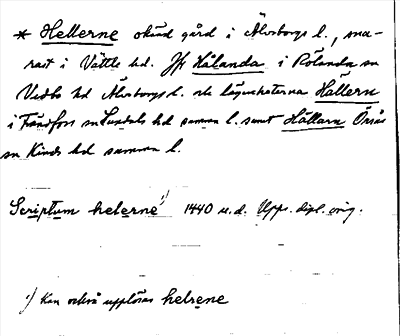 * Hellerne okänd gård i Älvsborgs l., sna-
rast i Vättle hd. Jfr Hålanda i Rölanda sn
Vedbo hd Älvsborgs l. och lägenheterna Hällern
i Fränd&fors sn Sundals hd samma l. samt Hällarn Örsås
sn Kinds hd samma l.
Scriptum helerne¹⁾ 1440 u.d. Upps. dipl. orig.
¹⁾ Kan också upplösas helrene